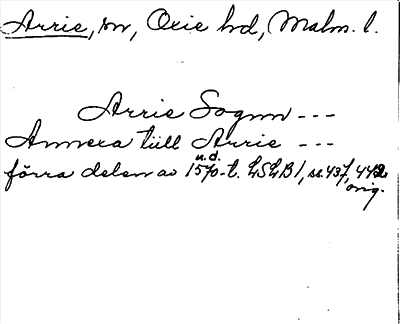 Arrie, sn, Oxie hd, Malm. l.
Arrie Sognn ---
Annexa tiill Arrie ---
n.d.
förra delen av 1570-t. LSLB1, ss. 437, 442
orig.